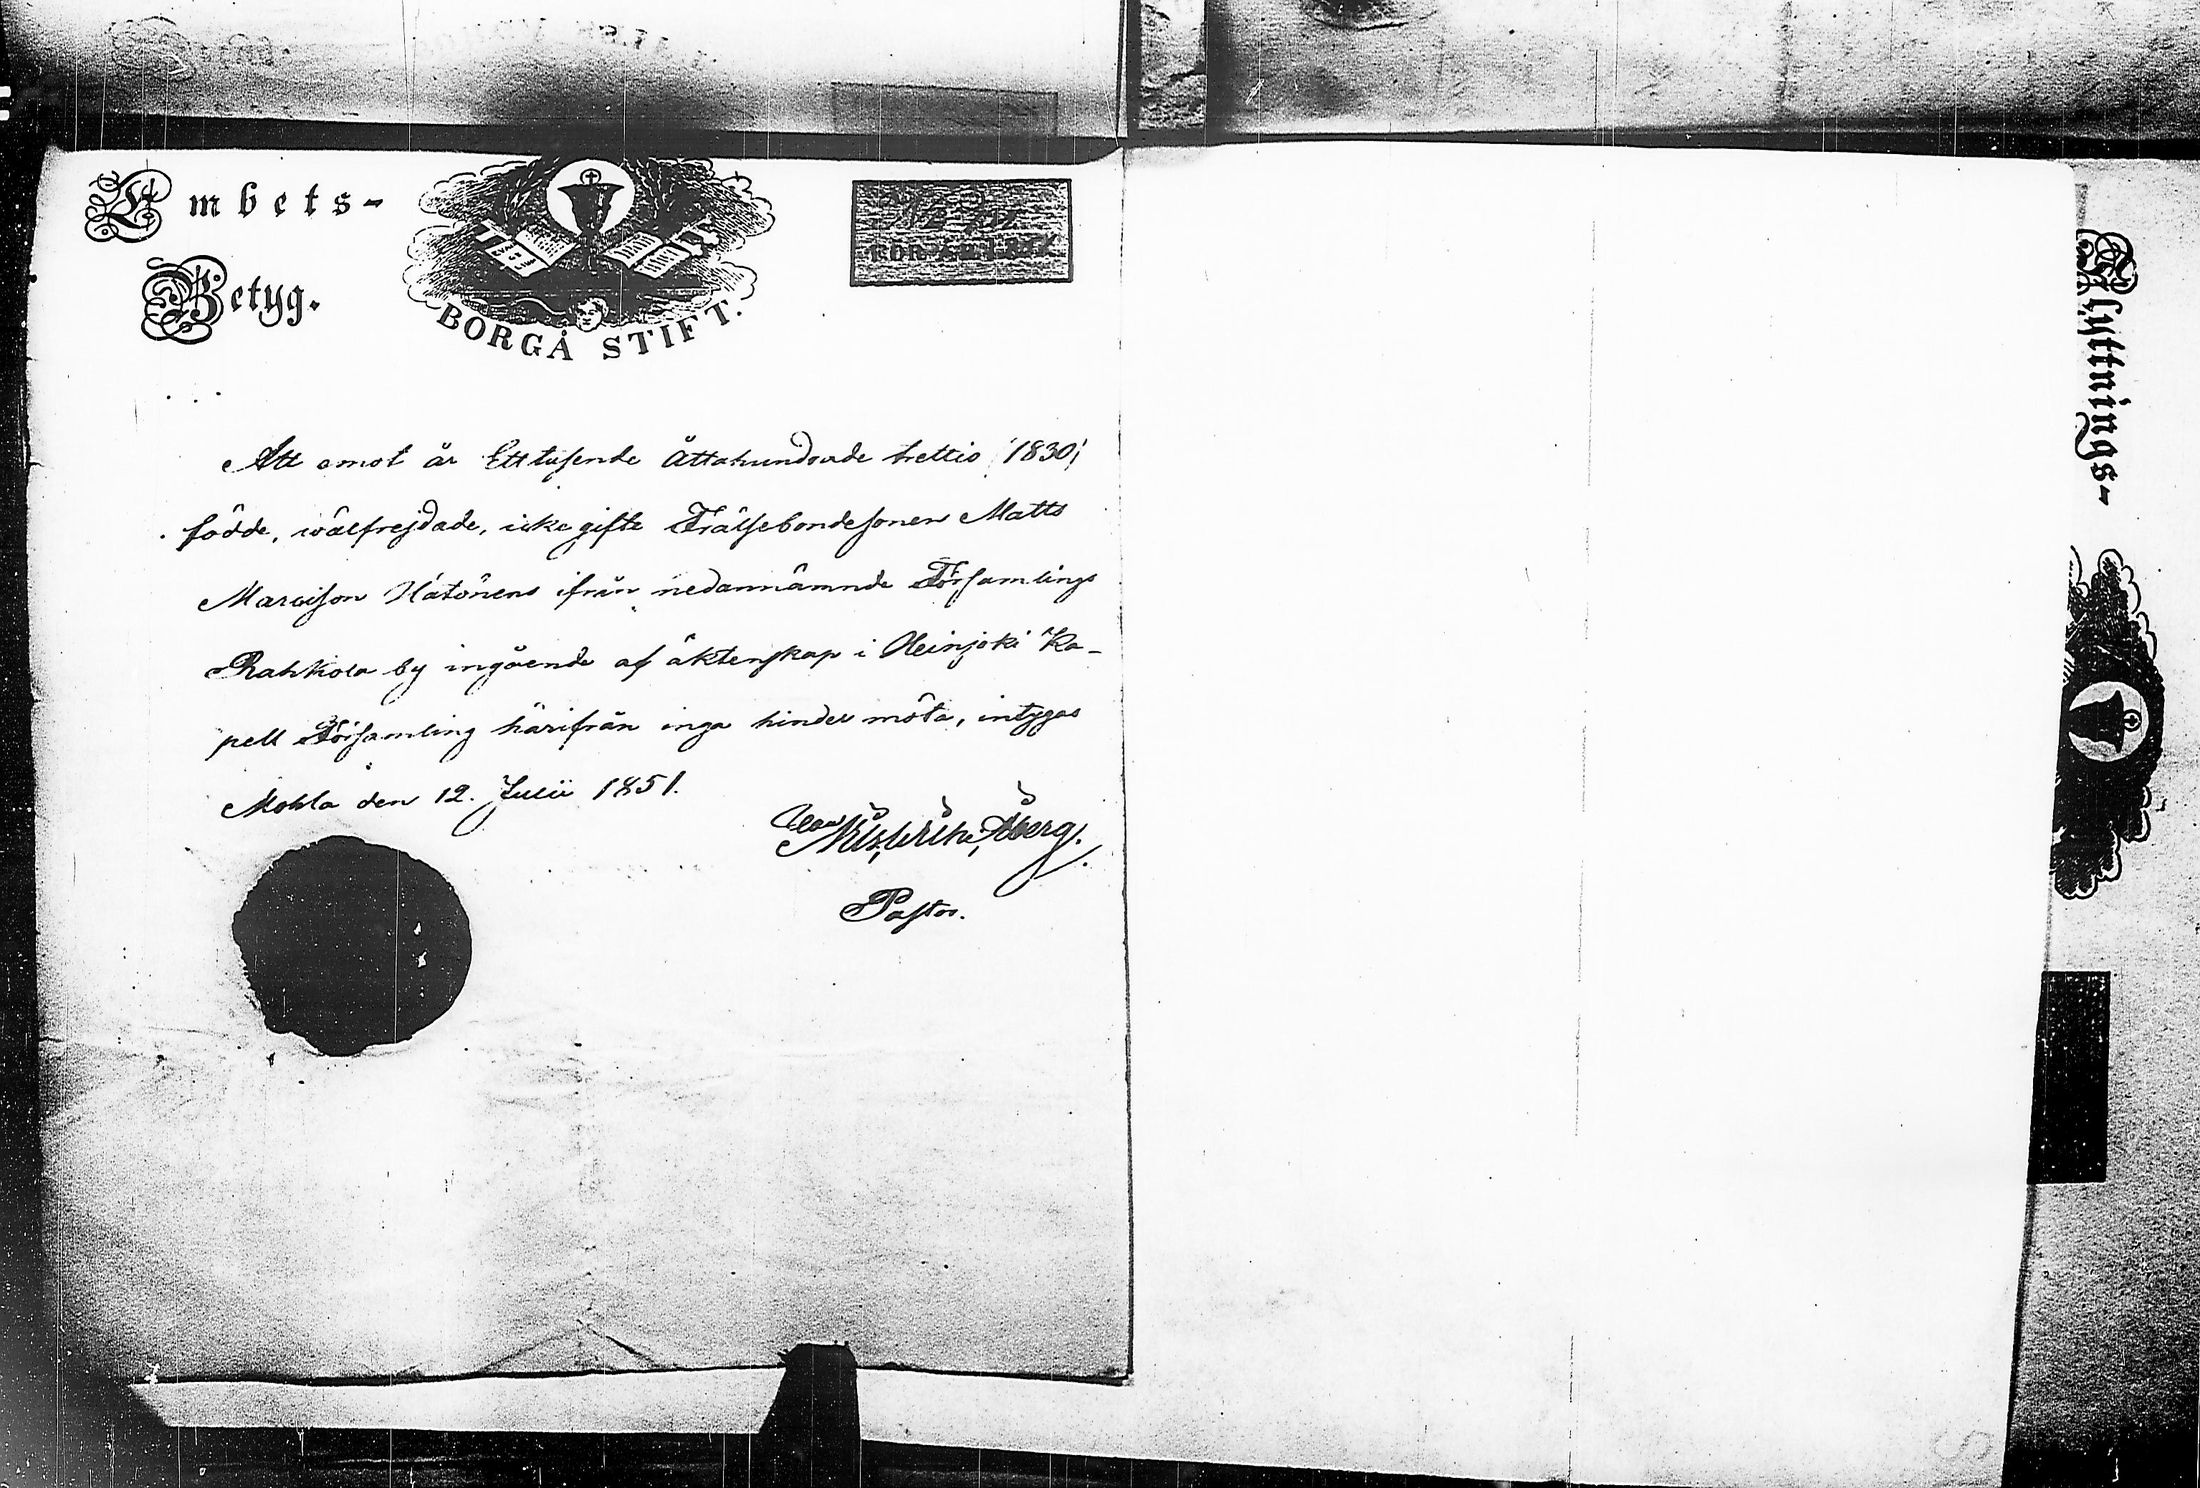 Embets-
Betyg.
BORGÅ STIFT.
Att emot år Ett tusende Åttahundrade trettio /1830/
födde, wälfrejdade, icke gifte Frälsebondesonen Matts
Hätönens ifrån nedannämnde Församlings
Rahkola by ingående af äktenskap i Heinjoki Ka-
pell Församling härifrån inga hinder möta, intygas
Mohla den 12. Julii 1851.
Åberg.
Pastor.
Flyttnings-